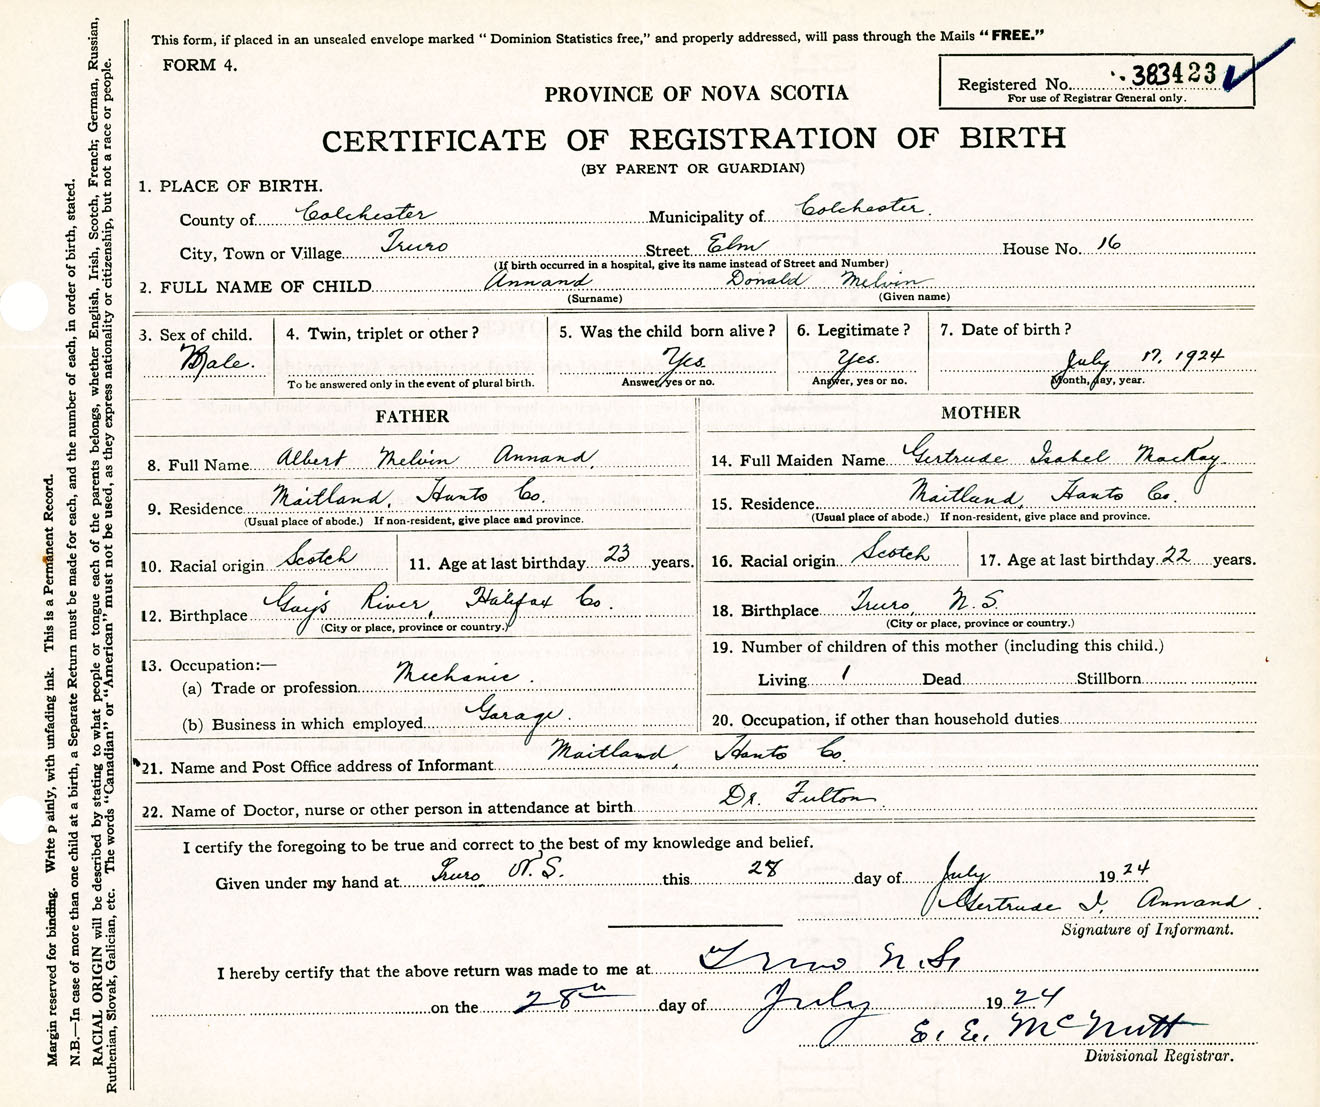 This form, if placed in an unsealed envelope marked “ Dominion Statistics free,” and properly addressed, will pass through the Mails “ FREE.”
FORM 4.
Registered No. 383423
For use of Registrar General only.
PROVINCE OF NOVA SCOTIA
CERTIFICATE OF REGISTRATION OF BIRTH
(BY PARENT OR GUARDIAN)
1. PLACE OF BIRTH.
County of Colchester Municipality of Colchester.
City, Town or Village Truro Street Elm House No. 16
(If birth occurred in a hospital, give its name instead of Street and Number)
2. FULL NAME OF CHILD Annand Donald Melvin
(Surname) (Given name)
3. Sex of child. 4. Twin, triplet or other ? 5. Was the child born alive ? 6. Legitimate ? 7. Date of birth ?
Male. Yes. Yes. July 17, 1924
To be answered only in the event of plural birth. Answer, yes or no. Answer, yes or no. Month, day, year.
FATHER MOTHER
8. Full Name Albert Melvin Annand. 14. Full Maiden Name Gertrude Isabel MacKay.
9. Residence Maitland, Hants Co. 15. Residence Maitland, Hants Co.
(Usual place of abode.) If non-resident, give place and province. (Usual place of abode.) If non-resident, give place and province.
10. Racial origin Scotch 11. Age at last birthday 23 years. 16. Racial origin Scotch 17. Age at last birthday 22 years.
12. Birthplace Gay's River, Halifax Co. 18. Birthplace Truro, N.S.
(City or place, province or country.) (City or place, province or country.)
19. Number of children of this mother (including this child.)
13. Occupation:—
(a) Trade or profession Mechanic. Living 1 Dead Stillborn
(b) Business in which employed Garage. 20. Occupation, if other than household duties
21. Name and Post Office address of Informant Maitland, Hants Co.
22. Name of Doctor, nurse or other person in attendance at birth Dr. Fulton.
I certify the foregoing to be true and correct to the best of my knowledge and belief.
Given under my hand at Truro N.S. this 28 day of July 19 24
Gertrude I. Annand.
Signature of Informant.
I hereby certify that the above return was made to me at Truro N.S.
on the 28th day of July 19 24
E. E. McNutt
Divisional Registrar.
Margin reserved for binding. Write p ainly, with unfading ink. This is a Permanent Record.
N.B.—In case of more than one child at a birth, a Separate Return must be made for each, and the number of each, in order of birth, stated.
RACIAL ORIGIN will be described by stating to what people or tongue each of the parents belongs, whether English, Irish, Scotch, French; German, Russian,
Ruthenian, Slovak, Galician, etc. The words “Canadian” or “American” must not be used, as they express nationality or citizenship, but not a race or people.